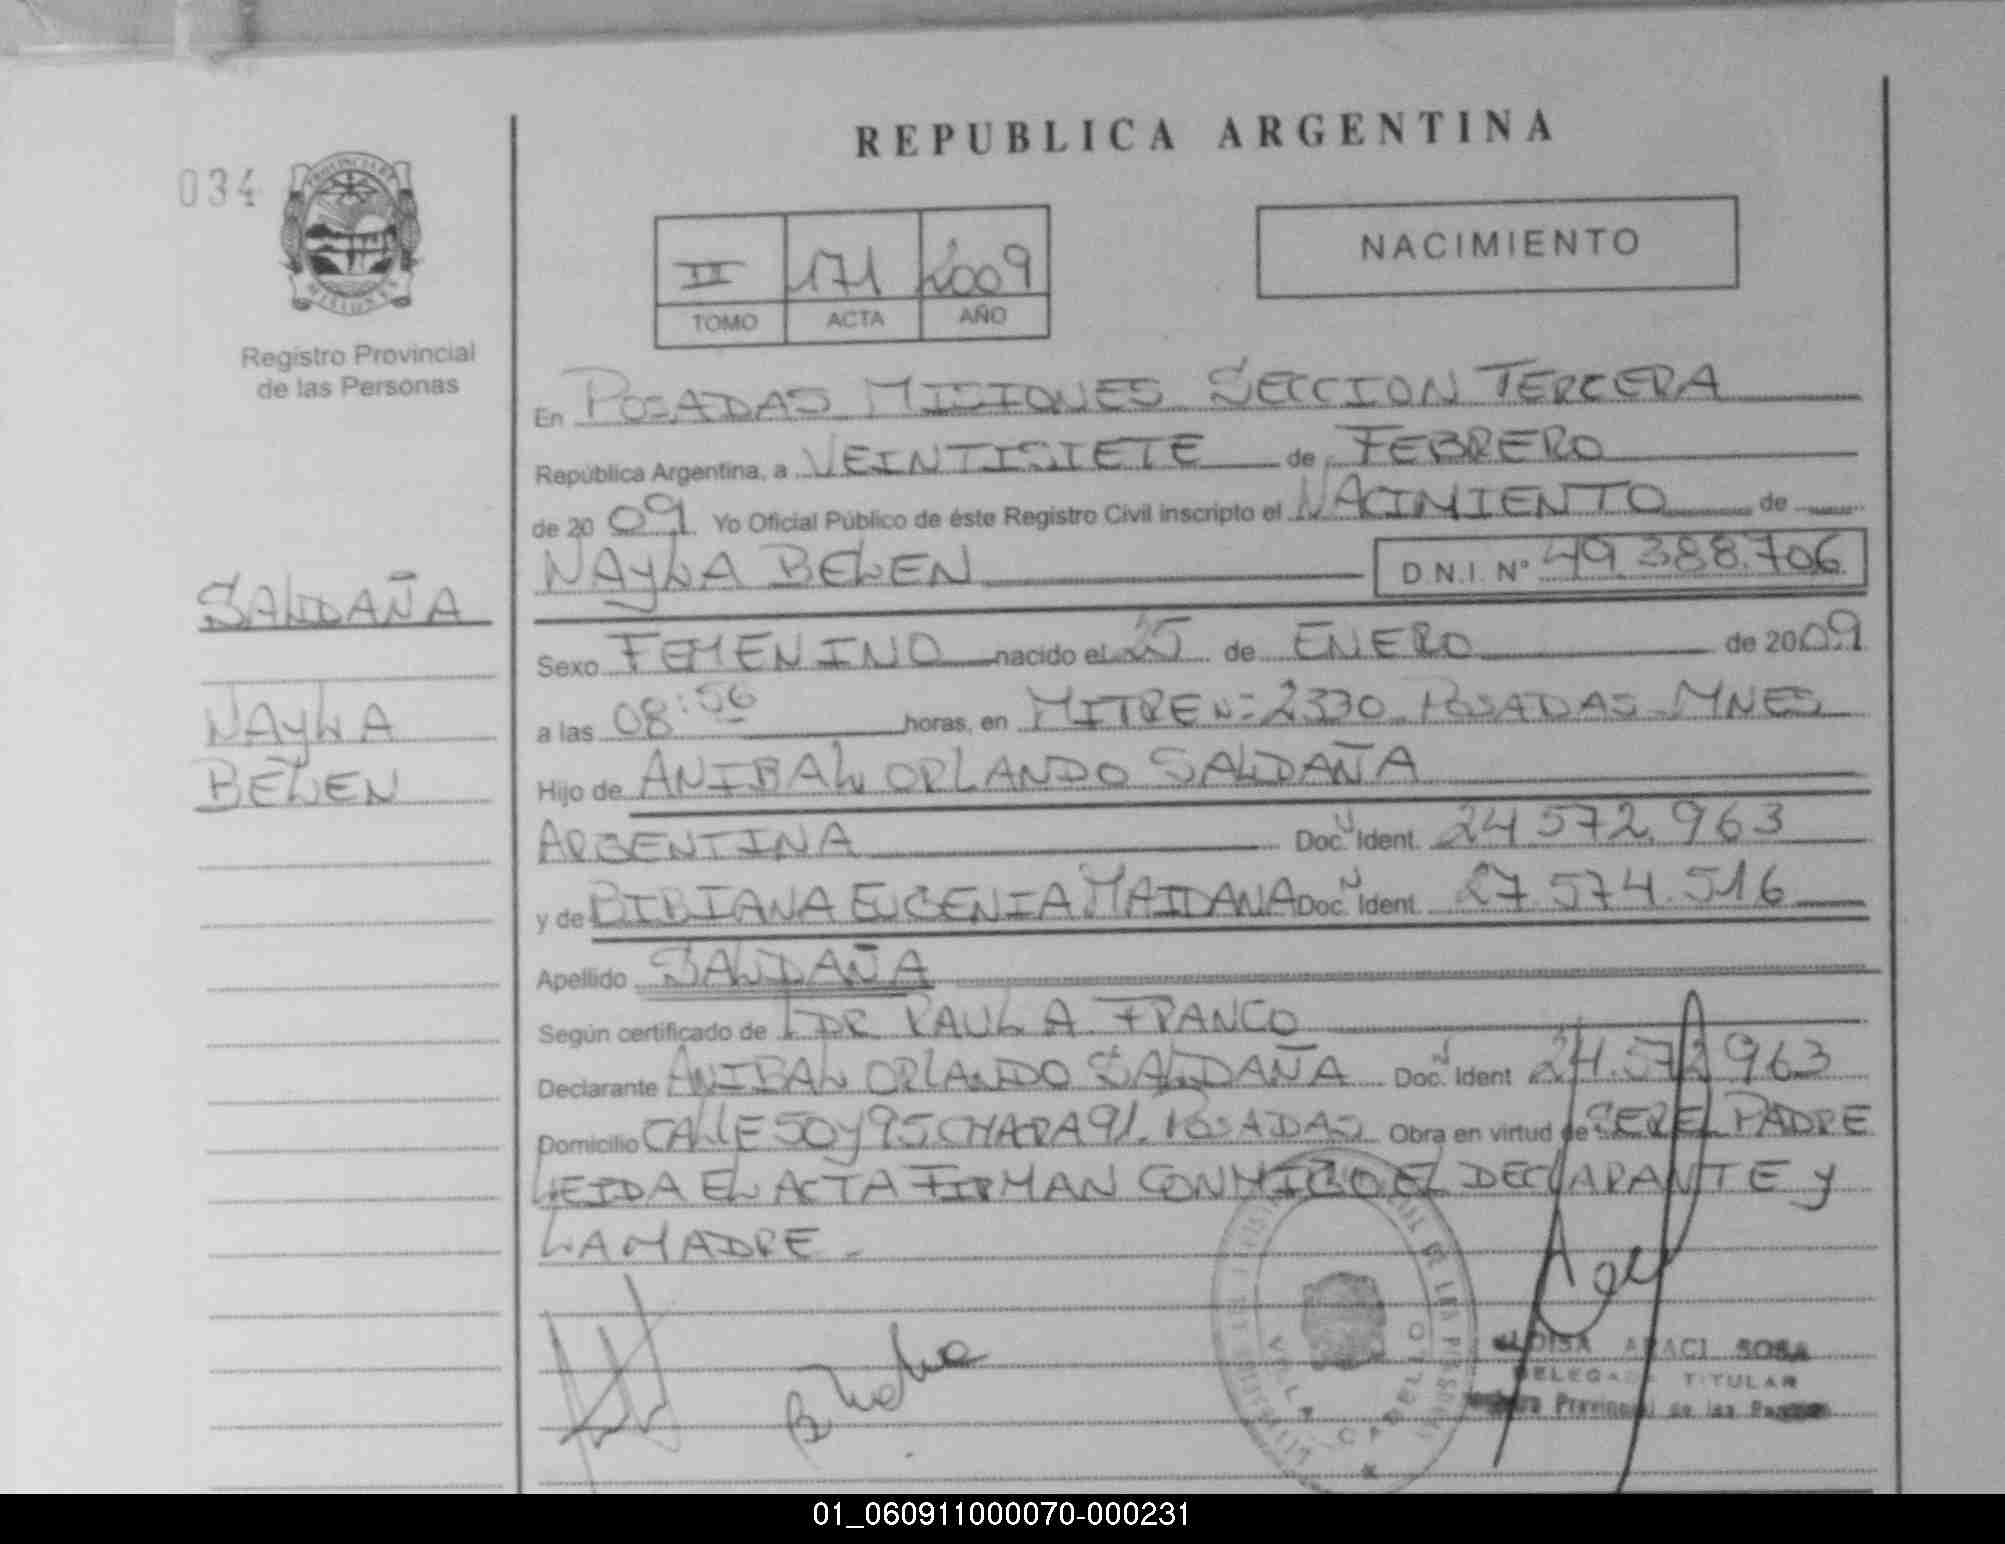 REPUBLICA ARGENTINA
034
PROVINCIA DE
MISIONES
Registro Provincial
de las Personas
II 171 2009
TOMO ACTA AÑO
NACIMIENTO
En POSADAS MISIONES SECCION TERCERA
República Argentina, a VEINTISIETE de FEBRERO
de 2009 Yo Oficial Público de éste Registro Civil inscripto el NACIMIENTO de
NAYLA BELEN D.N.I. Nº 49.388.706
SALDAÑA
NAYLA
BELEN
Sexo FEMENINO nacido el 25 de ENERO de 2009
a las 08:56 horas, en MITRE Nº 2330 POSADAS MNES
Hijo de ANIBAL ORLANDO SALDAÑA
ARGENTINA Doc. Ident. 24.572.963
y de BIBIANA EUGENIA MAIDANA Doc. Ident. 27.574.516
Apellido SALDAÑA
Según certificado de DR PAULA FRANCO
Declarante ANIBAL ORLANDO SALDAÑA Doc. Ident 24.572.963
Domicilio CALLE 50 y 95 CHARA 91. POSADAS Obra en virtud de SER EL PADRE
LEIDA EL ACTA FIRMAN CONMIGO EL DECLARANTE y
LA MADRE.
VILLA CABELLO
ARACI SOSA
DELEGADA TITULAR
Provincial de las
01_060911000070-000231